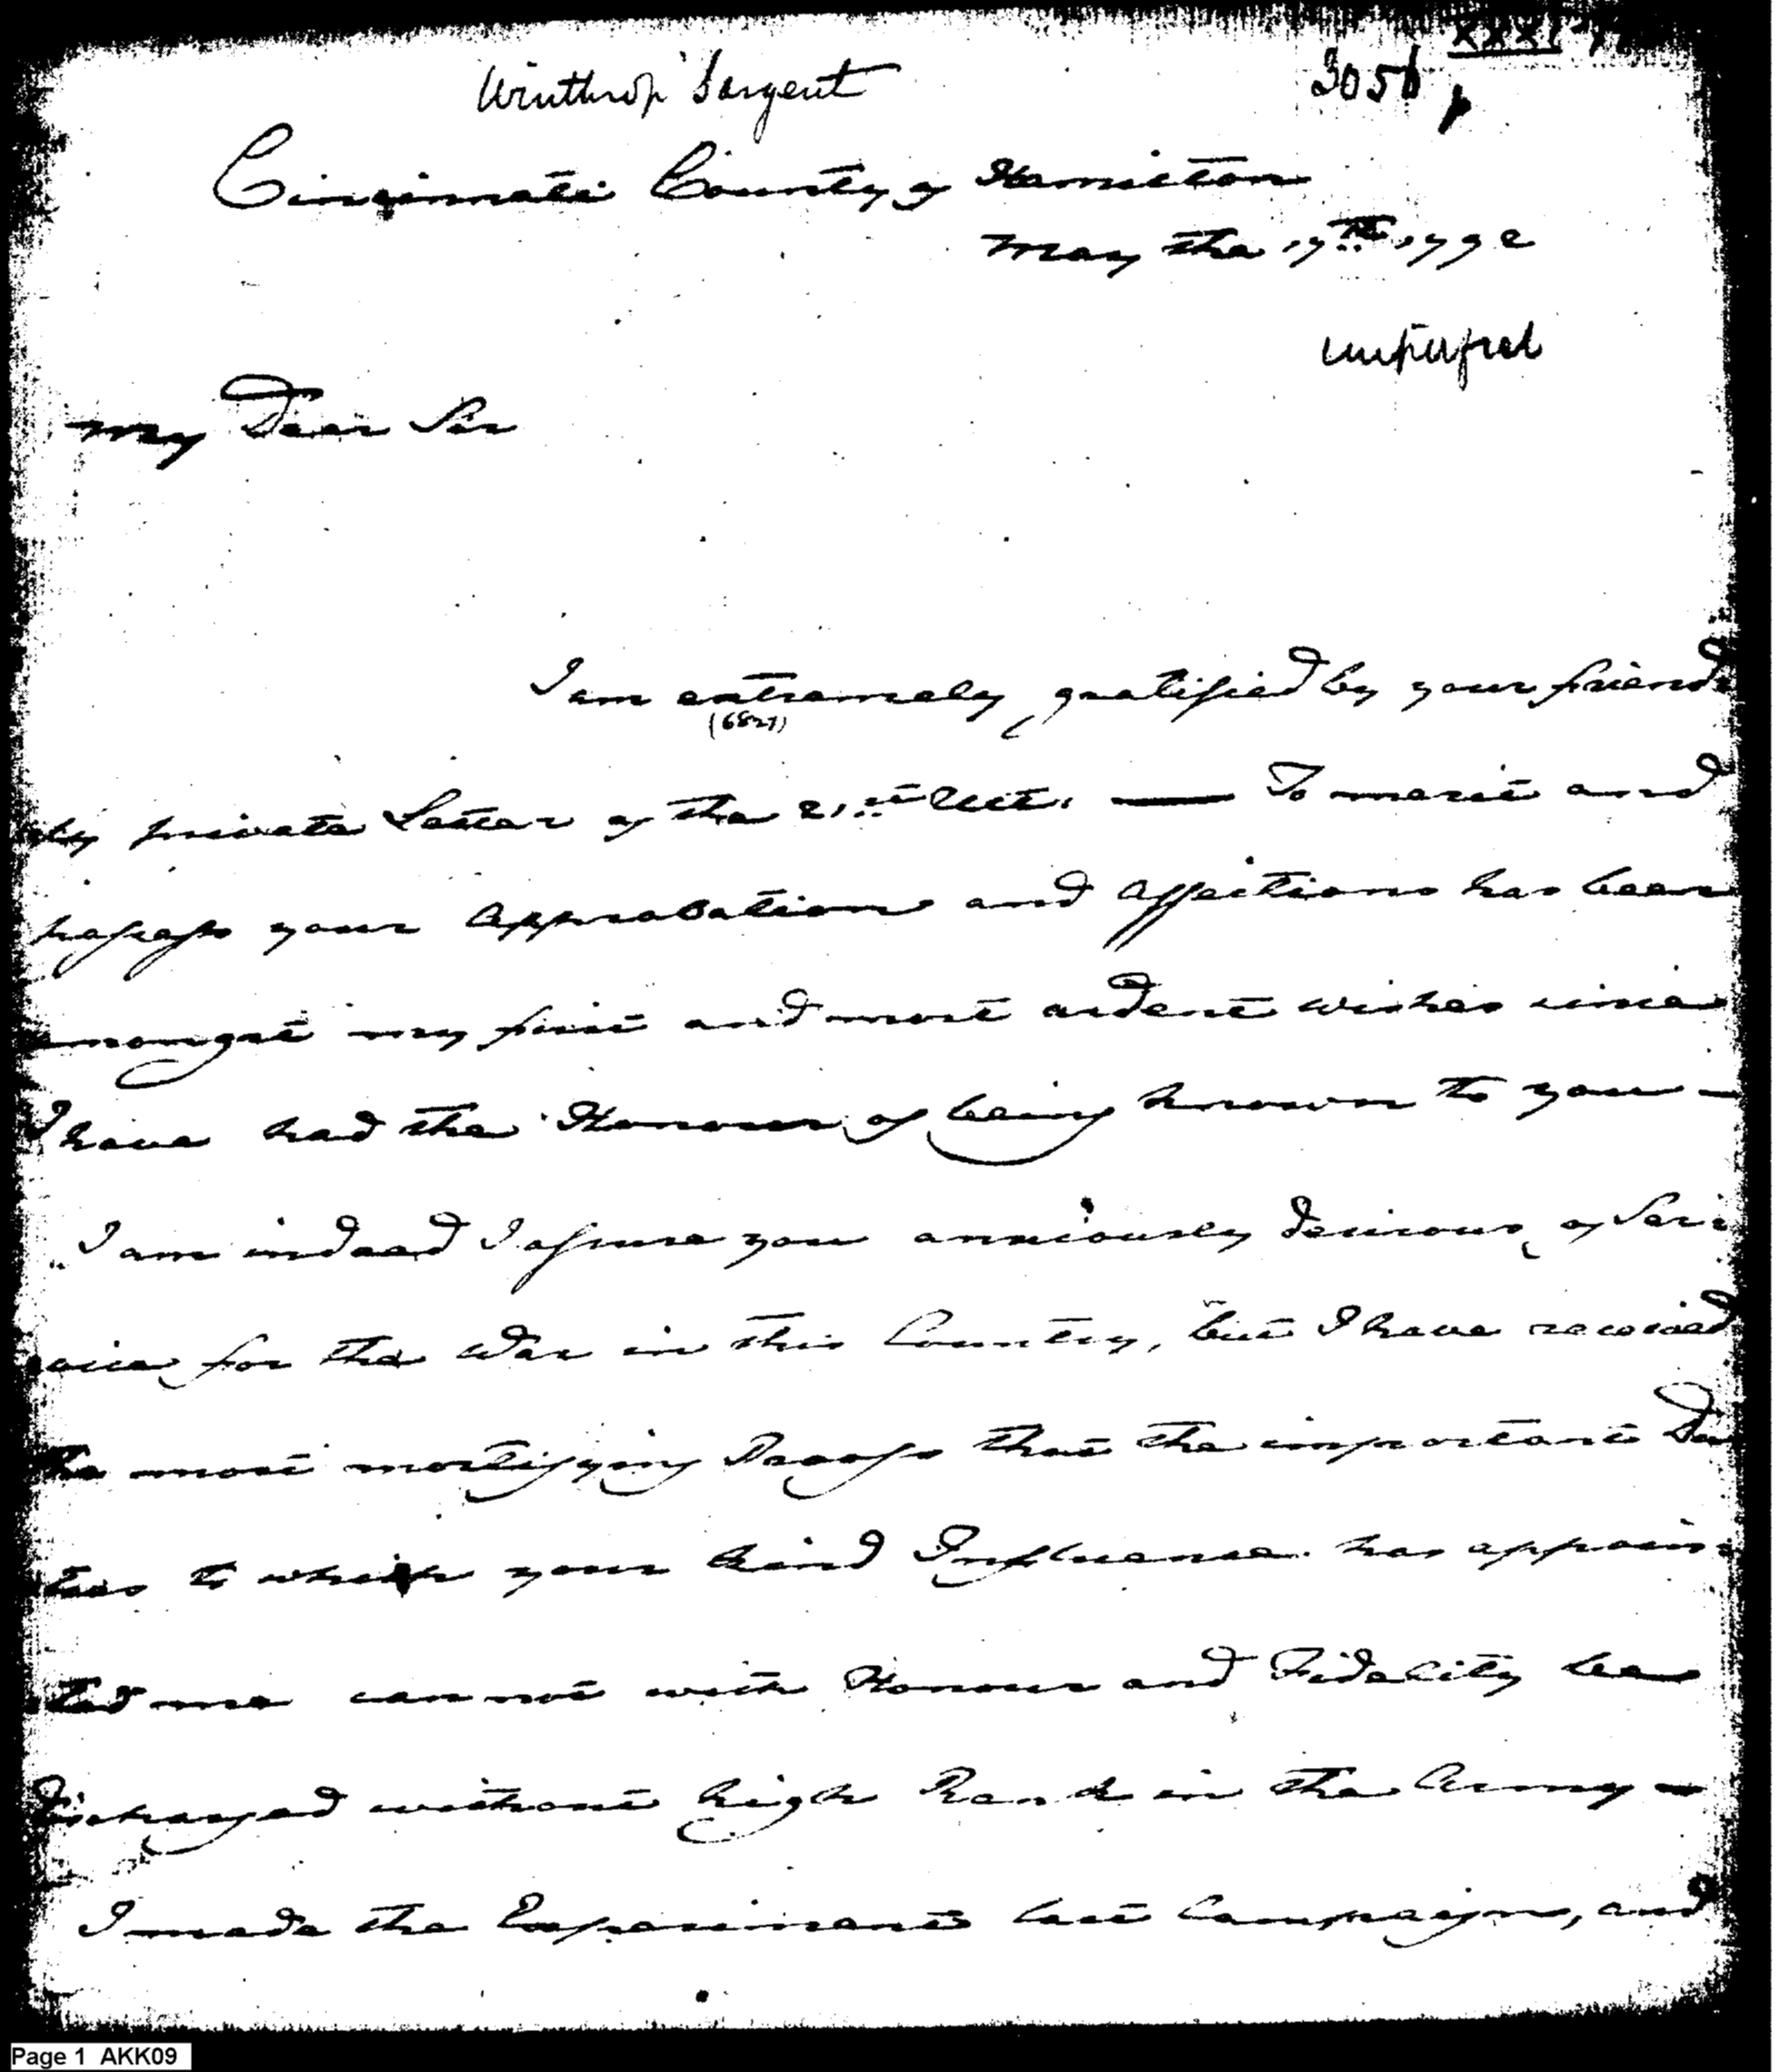 XXXI
Winthrop Sargent
3056
Cincinnati County of Hamilton
May the 17th 1792
imperfect
My Dear Sir
I am extremely gratified by your friend
(6821)
ly private Letter of the 21st Ult. — To merit and
possess your Approbation and Affections has been
amongst my first and most ardent wishes since
I have had the Honour of being known to you —
I am indeed I assure you anxiously desirous of Ser:
vice for the War in this Country, but I have received
the most mortifying Proofs that the important Du
ties to which your kind Influence has appoin:
ted me can not with Honour and Fidelity be
Discharged without high Rank in the Army —
I made the Experiment last Campaign, and
Page 1 AKK09